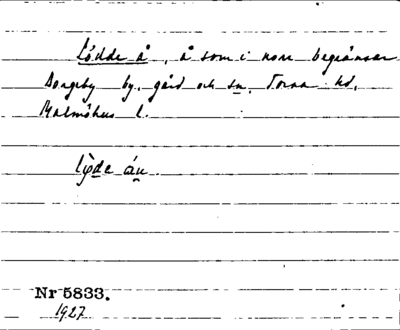 Lödde å, å som i norr begränsar
Borgeby by, gård och sn, Torna hd,
Malmöhus l.
lø̀de áu
Nr 5833.
1927